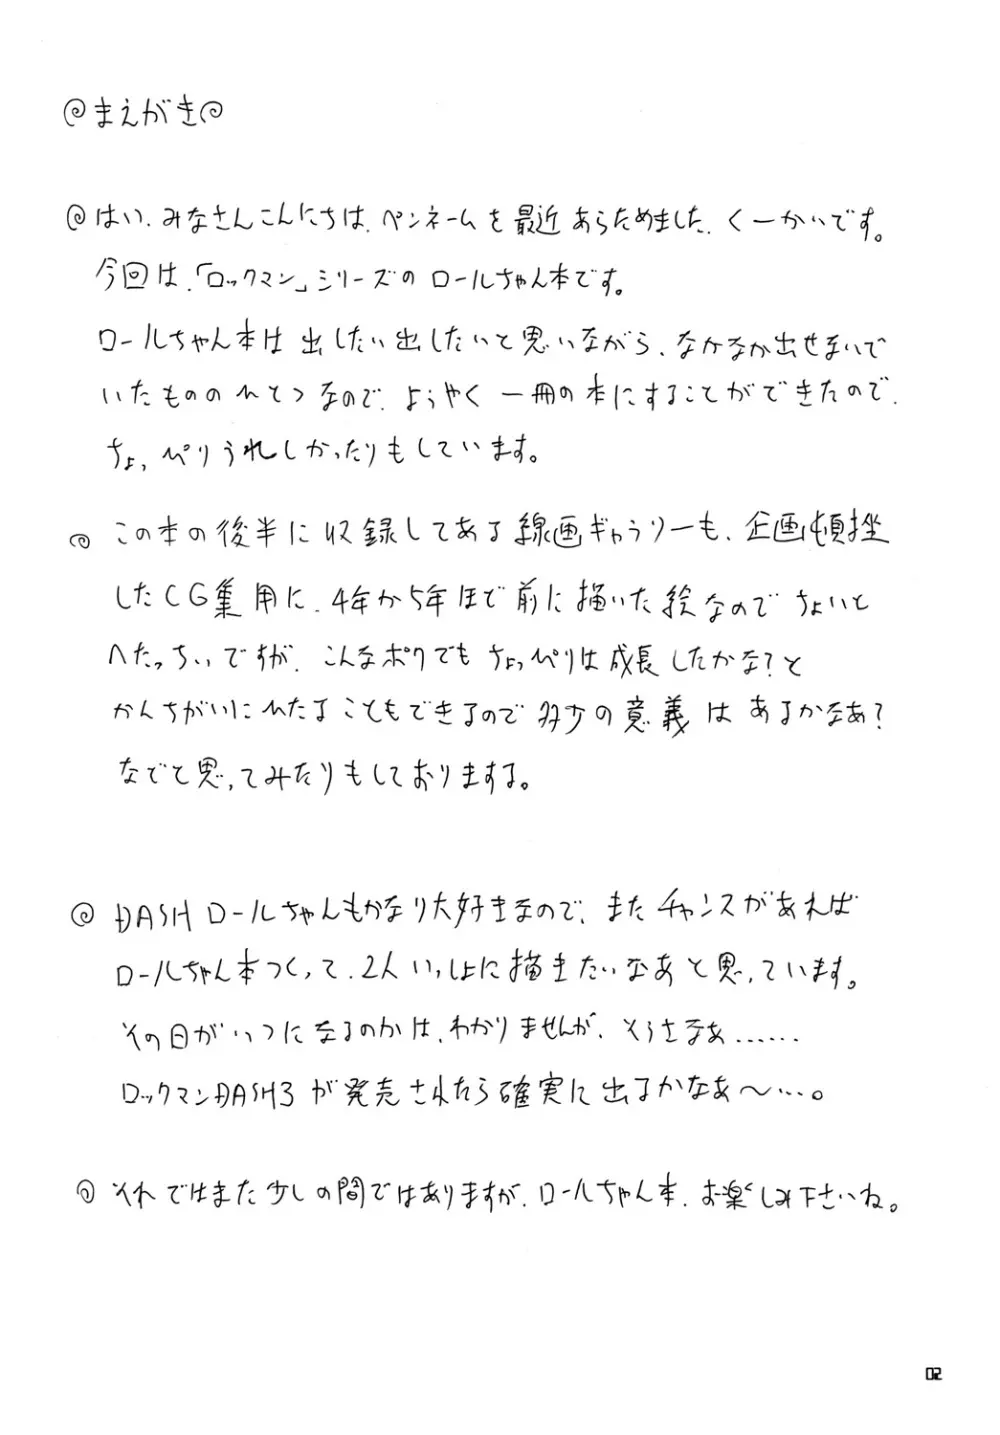 @まえがき@
@はい、みなさんこんにちは、ペンネームを最近あらためました、くーかいです。
今回は、「ロックマン」シリーズのロールちゃん本です。
ロールちゃん本は出したい出したいと思いながら、なかなか出せないで
いたもののひとつなので、ようやく一冊の本にすることができたので、
ちょっぴりうれしかったりもしています。
@この本の後半に収録してある線画ギャラリーも、企画頓挫
したCG集用に、4年から5年ほど前に描いた絵なのでちょいと
へたっちぃですが、こんなボクでもちょっぴりは成長したかな?と
かんちがいにひたることもできるので多少の意義はあるかなあ?
などと思ってみたりもしておりまする。
@DASHロールちゃんもかなり大好きなので、またチャンスがあれば
ロールちゃん本つくって、2人いっしょに描きたいなあと思っています。
その日がいつになるのかは、わかりませんが、そうさなぁ......
ロックマンDASH3が発売されたら確実に出るかなぁ〜...。
@それではまた少しの間ではありますが、ロールちゃん本、お楽しみ下さいね。
02